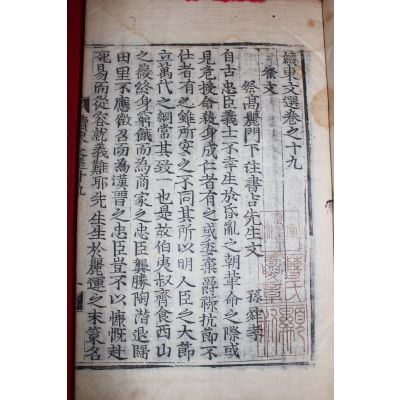 續東文選卷之十九
祭文
祭高麗門下注書吉先生文
孫舜孝
自古忠臣義士不幸生於昏亂之朝革命之際或
見危授命殺身成仁者有之或委棄爵祿抗節不
仕者有之雖所安之不同其所以明人臣之大節
立萬代之綱常其致一也是故伯夷叔齊食西山
之薇終身窮餓而為商家之忠臣龔勝陶潛退歸
田里不應徵召而為漢晉之忠臣豈不以慷慨赴
死易而從容就義難耶先生生於麗運之末策名